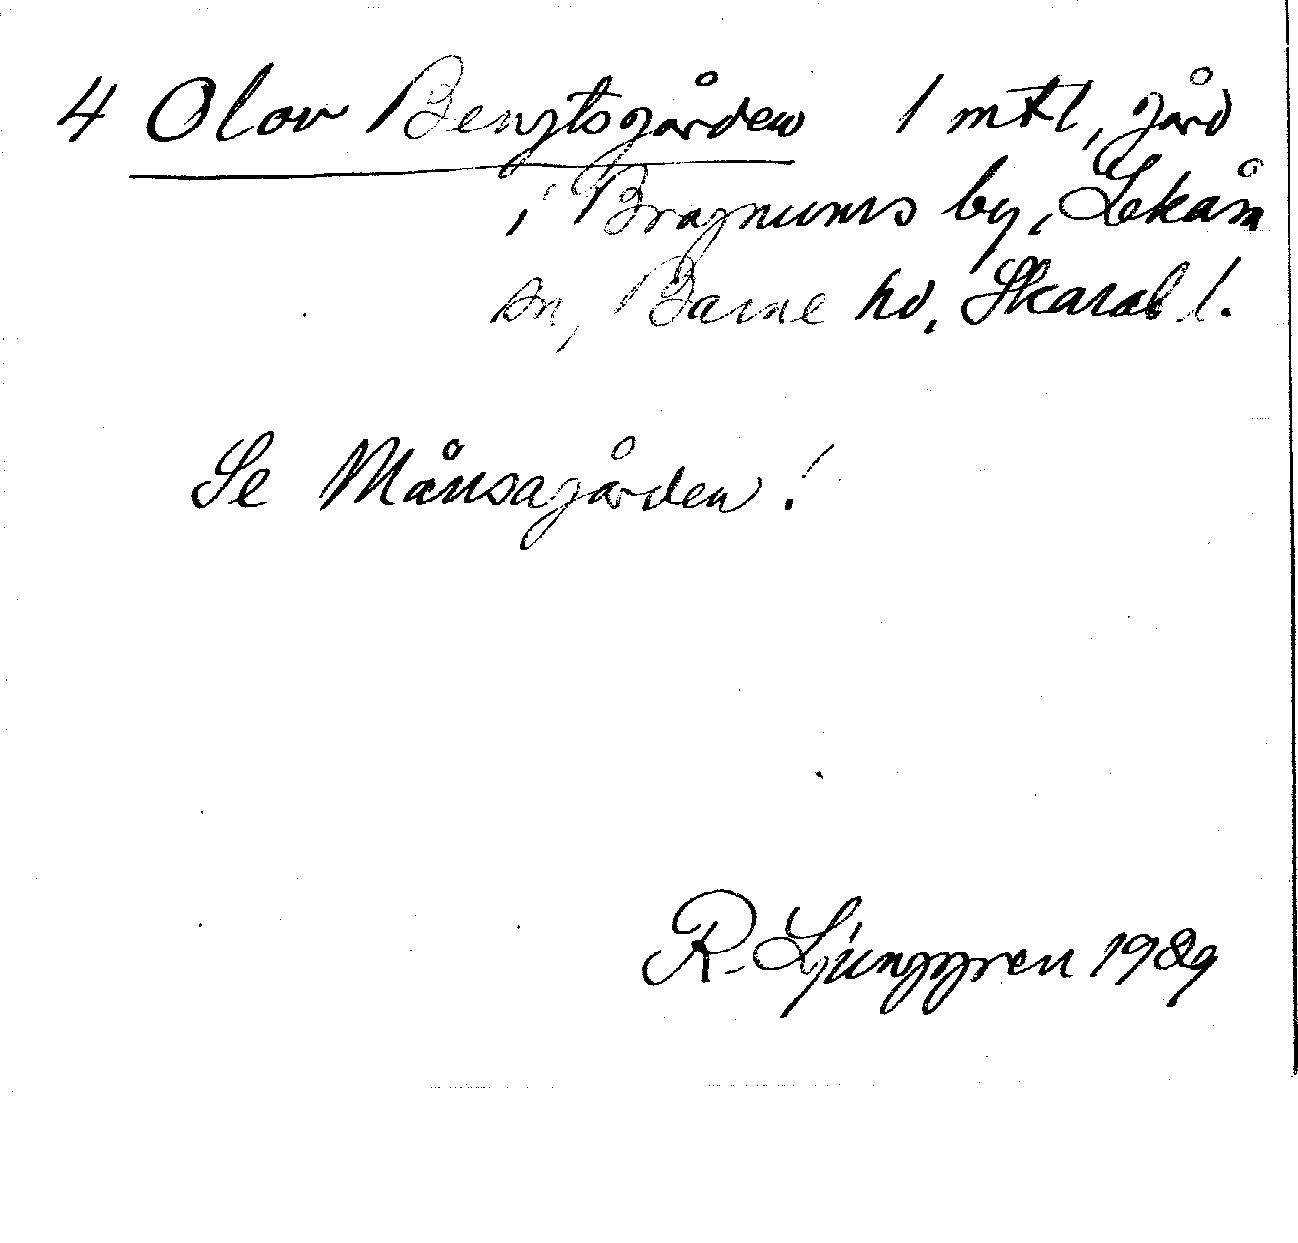 4 Olov Bengtsgården 1 mtl, gård
i Bragnums by, Lekåsa
sn, Barne hd, Skarab l.
Se Månsagården!
R. Ljunggren 1989